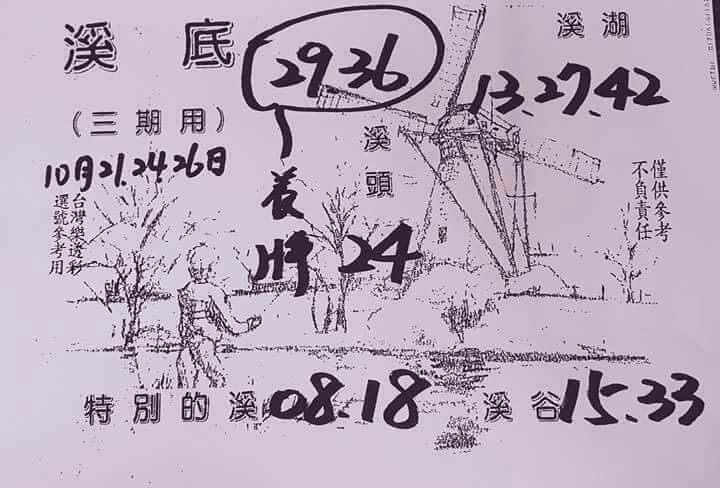 溪底
2936
溪湖
13.27.42
（三期用）
10月21.2426日
台灣樂透彩
選號參考用
溪頭
24
僅供參考
不負責任
特別的溪08.18
溪谷15.33